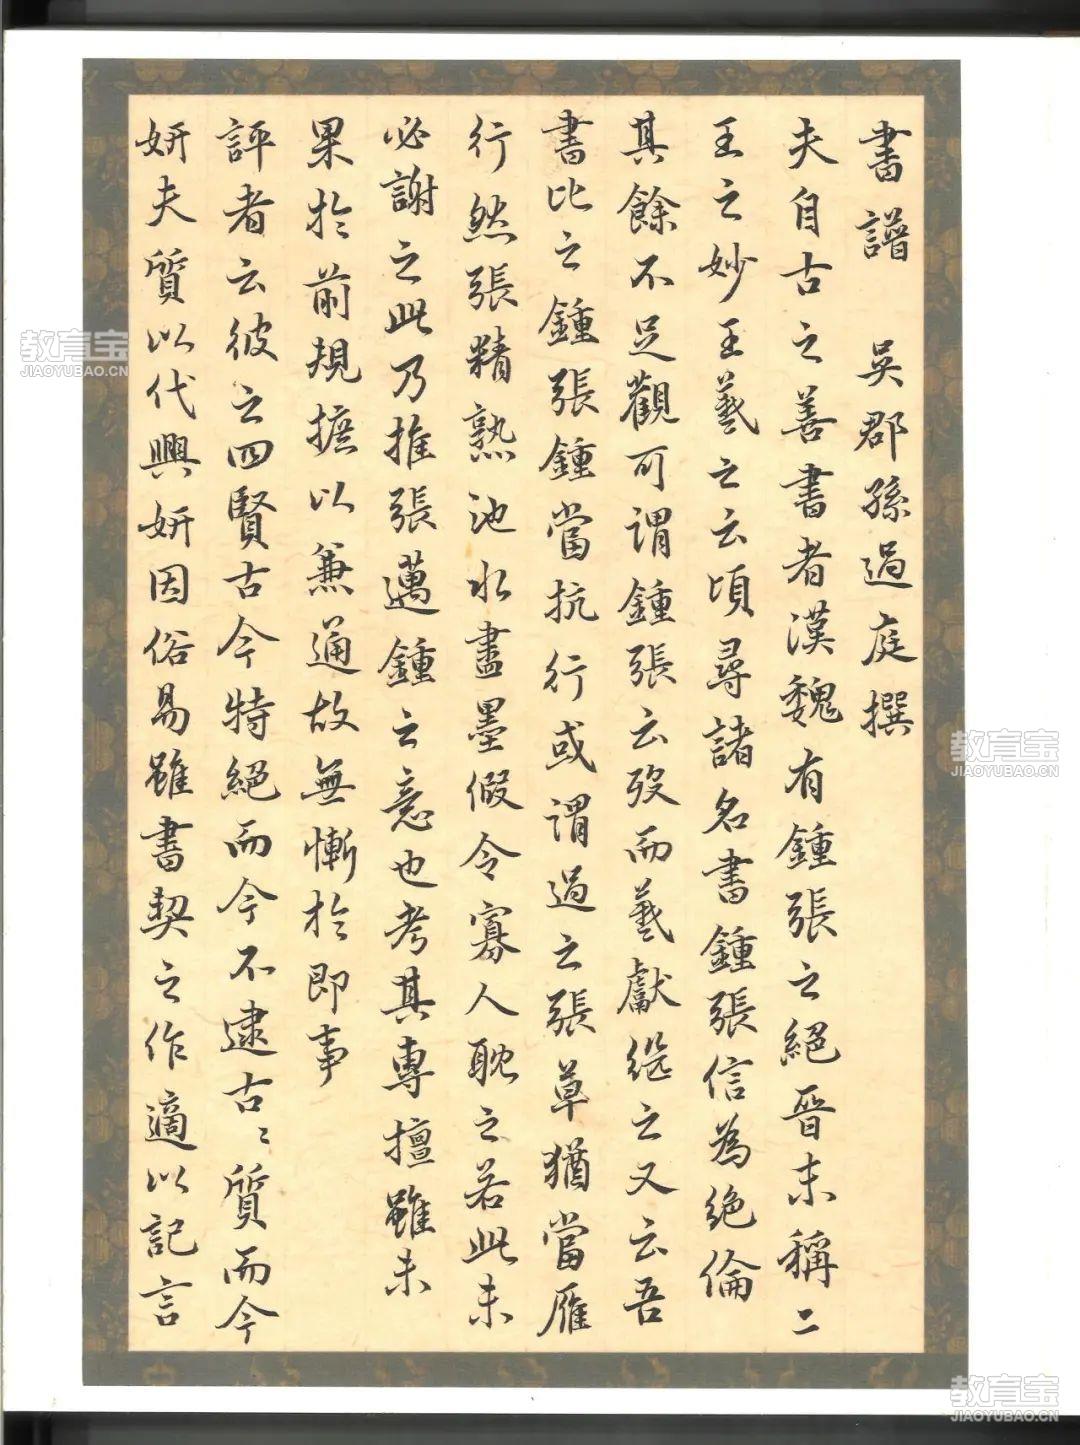 書譜 吳郡孫過庭撰
夫自古之善書者漢魏有鍾張之絕晉末稱二
王之妙王羲之云頃尋諸名書鍾張信為絕倫
其餘不足觀可謂鍾張云歿而羲獻繼之又云吾
書比之鍾張鍾當抗行或謂過之張草猶當雁
行然張精熟池水盡墨假令寡人耽之若此未
必謝之此乃推張邁鍾之意也考其專擅雖未
果於前規摭以兼通故無慚於即事
評者云彼之四賢古今特絕而今不逮古〻質而今
妍夫質以代興妍因俗易雖書契之作適以記言
教育宝
JIAOYUBAO.CN
教育宝
JIAOYUBAO.CN
教育宝
JIAOYUBAO.CN